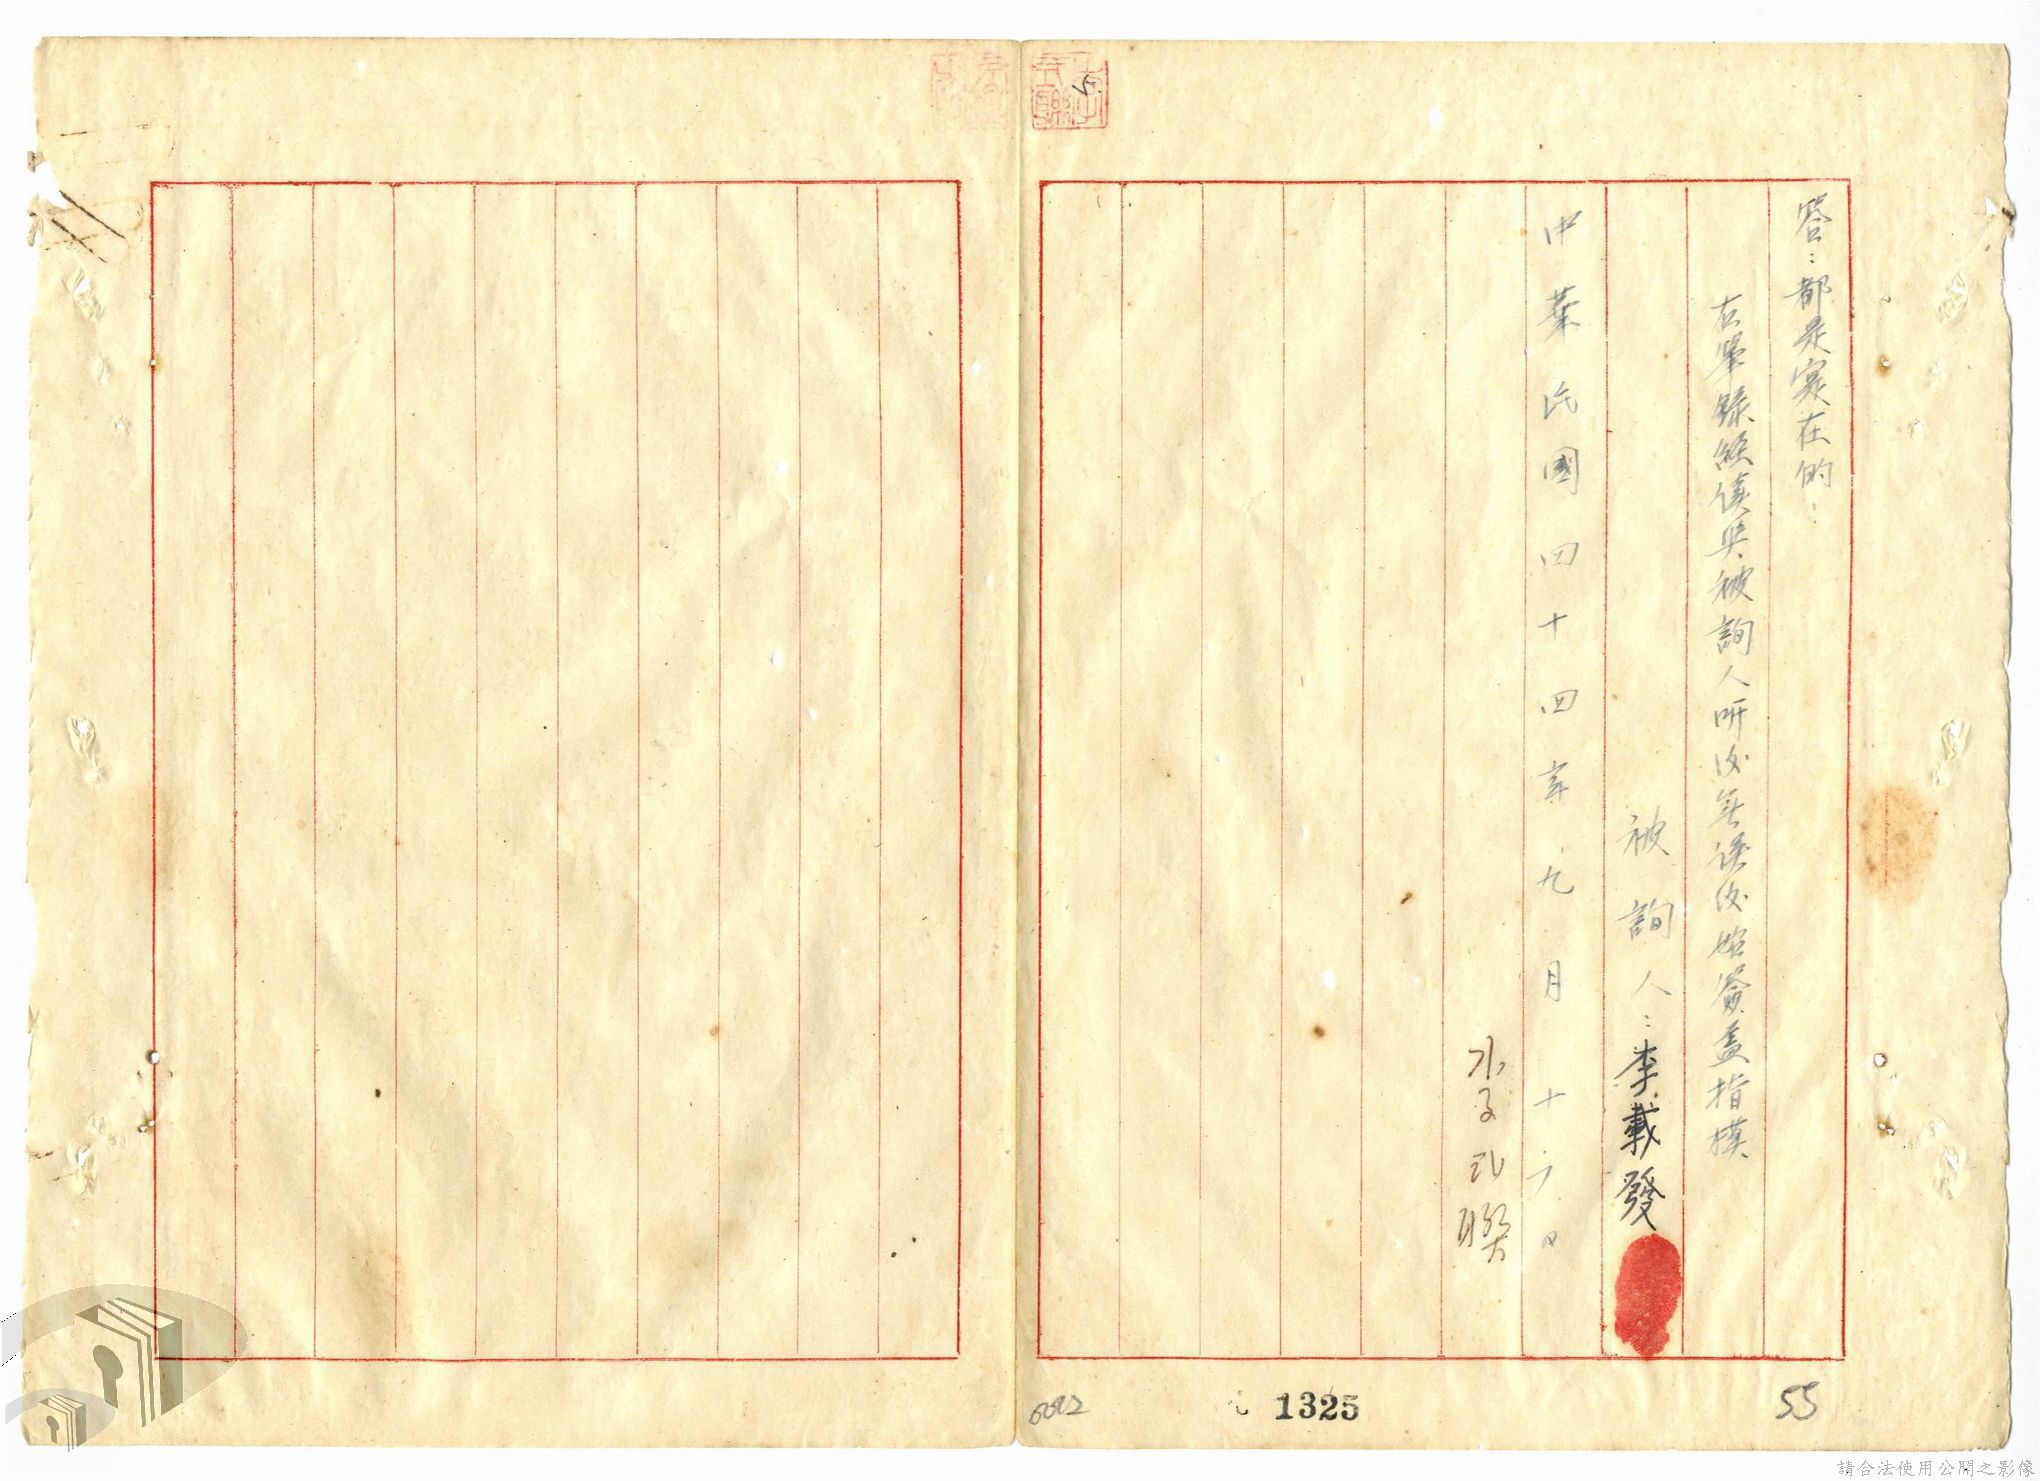 答：都是實在的．
右筆錄經復與被詢人听後無誤後始簽蓋指模
被詢人：李載發
中華民國四十四年九月十六日
李丞聯
5.
1325
55
請合法使用公開之影像